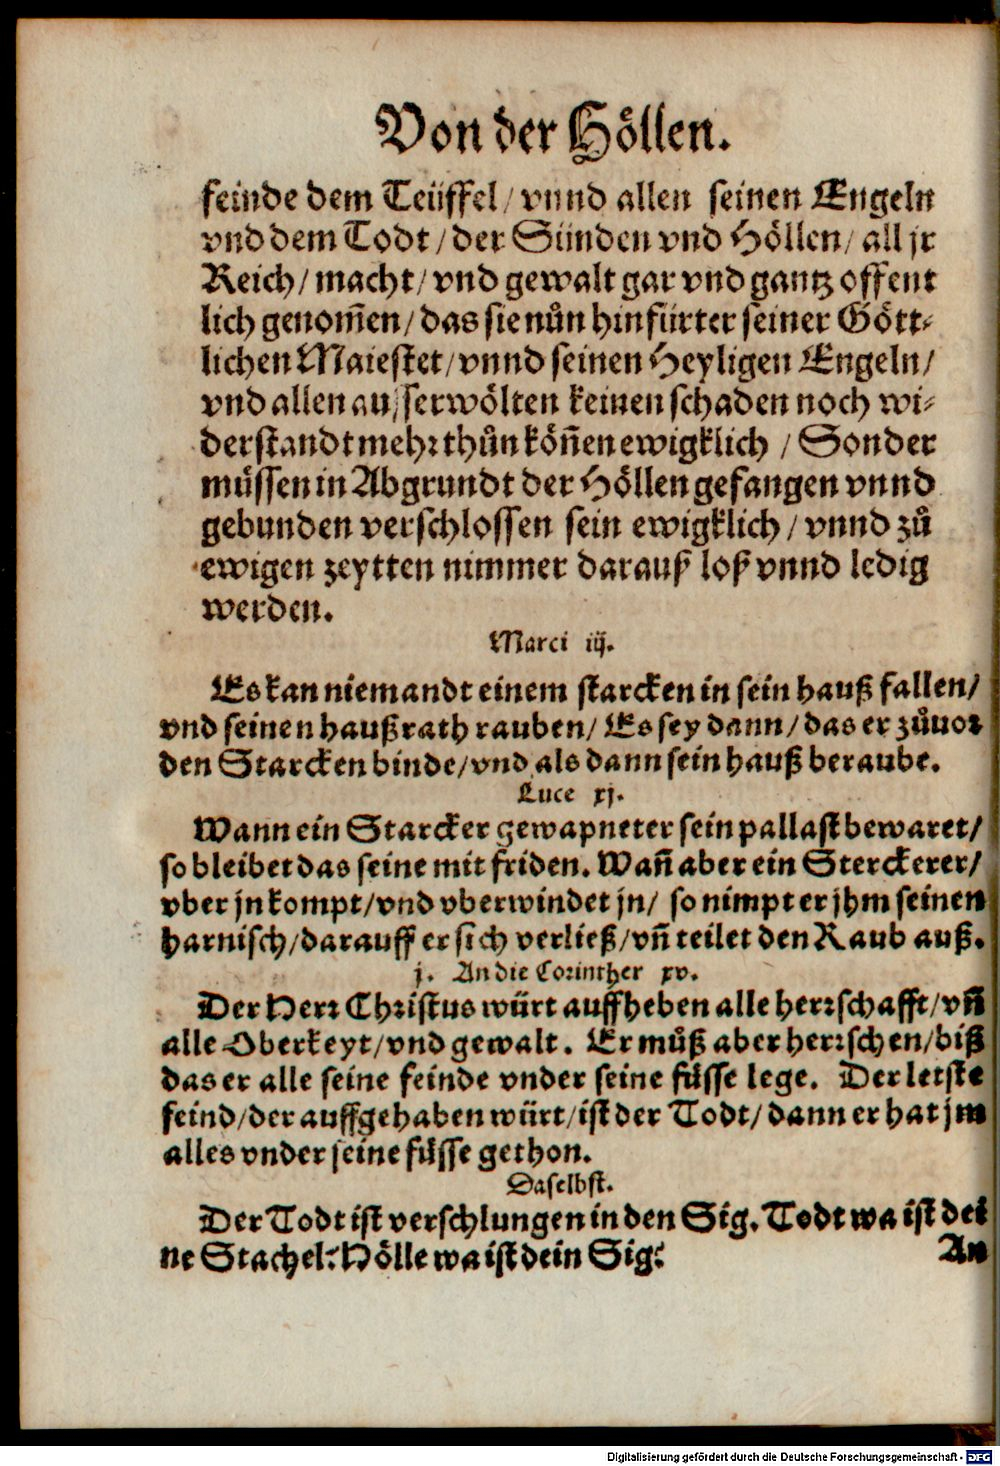 Von der Höllen.
feinde dem Teüffel/ vnnd allen seinen Engeln
vnd dem Todt/ der Sünden vnd Höllen/ all jr
Reich/ macht/ vnd gewalt gar vnd gantz offent
lich genom̃en/ das sie nůn hinfürter seiner Gött⸗
lichen Maiestet/ vnnd seinen Heyligen Engeln/
vnd allen ausserwölten keinen schaden noch wi⸗
derstandt mehr thůn kön̄en ewigklich / Sonder
müssen in Abgrundt der Höllen gefangen vnnd
gebunden verschlossen sein ewigklich/ vnnd zů
ewigen zeytten nimmer darauß loß vnnd ledig
werden.
Marci iij.
Es kan niemandt einem starcken in sein hauß fallen/
vnd seinen haußrath rauben/ Es sey dann/ das er zůuor
den Starcken binde/ vnd als dann sein hauß beraube.
Luce xj.
Wann ein Starcker gewapneter sein pallast bewaret/
so bleibet das seine mit friden. Wan̄ aber ein Sterckerer/
vber jn kompt/ vnd vberwindet jn/ so nimpt er jhm seinen
harnisch/ darauff er sich verließ/ vn̄ teilet den Raub auß.
j. An die Corinther xv.
Der Herr Christus würt auffheben alle herrschafft/ vn̄
alle Oberkeyt/ vnd gewalt. Er můß aber herrschen/ biß
das er alle seine feinde vnder seine füsse lege. Der letste
feind/ der auffgehaben würt/ ist der Todt/ dann er hat jm
alles vnder seine füsse gethon.
Daselbst.
Der Todt ist verschlungen in den Sig. Todt wa ist dei
ne Stachel? Hölle wa ist dein Sig?
An
Digitalisierung gefördert durch die Deutsche Forschungsgemeinschaft - DFG